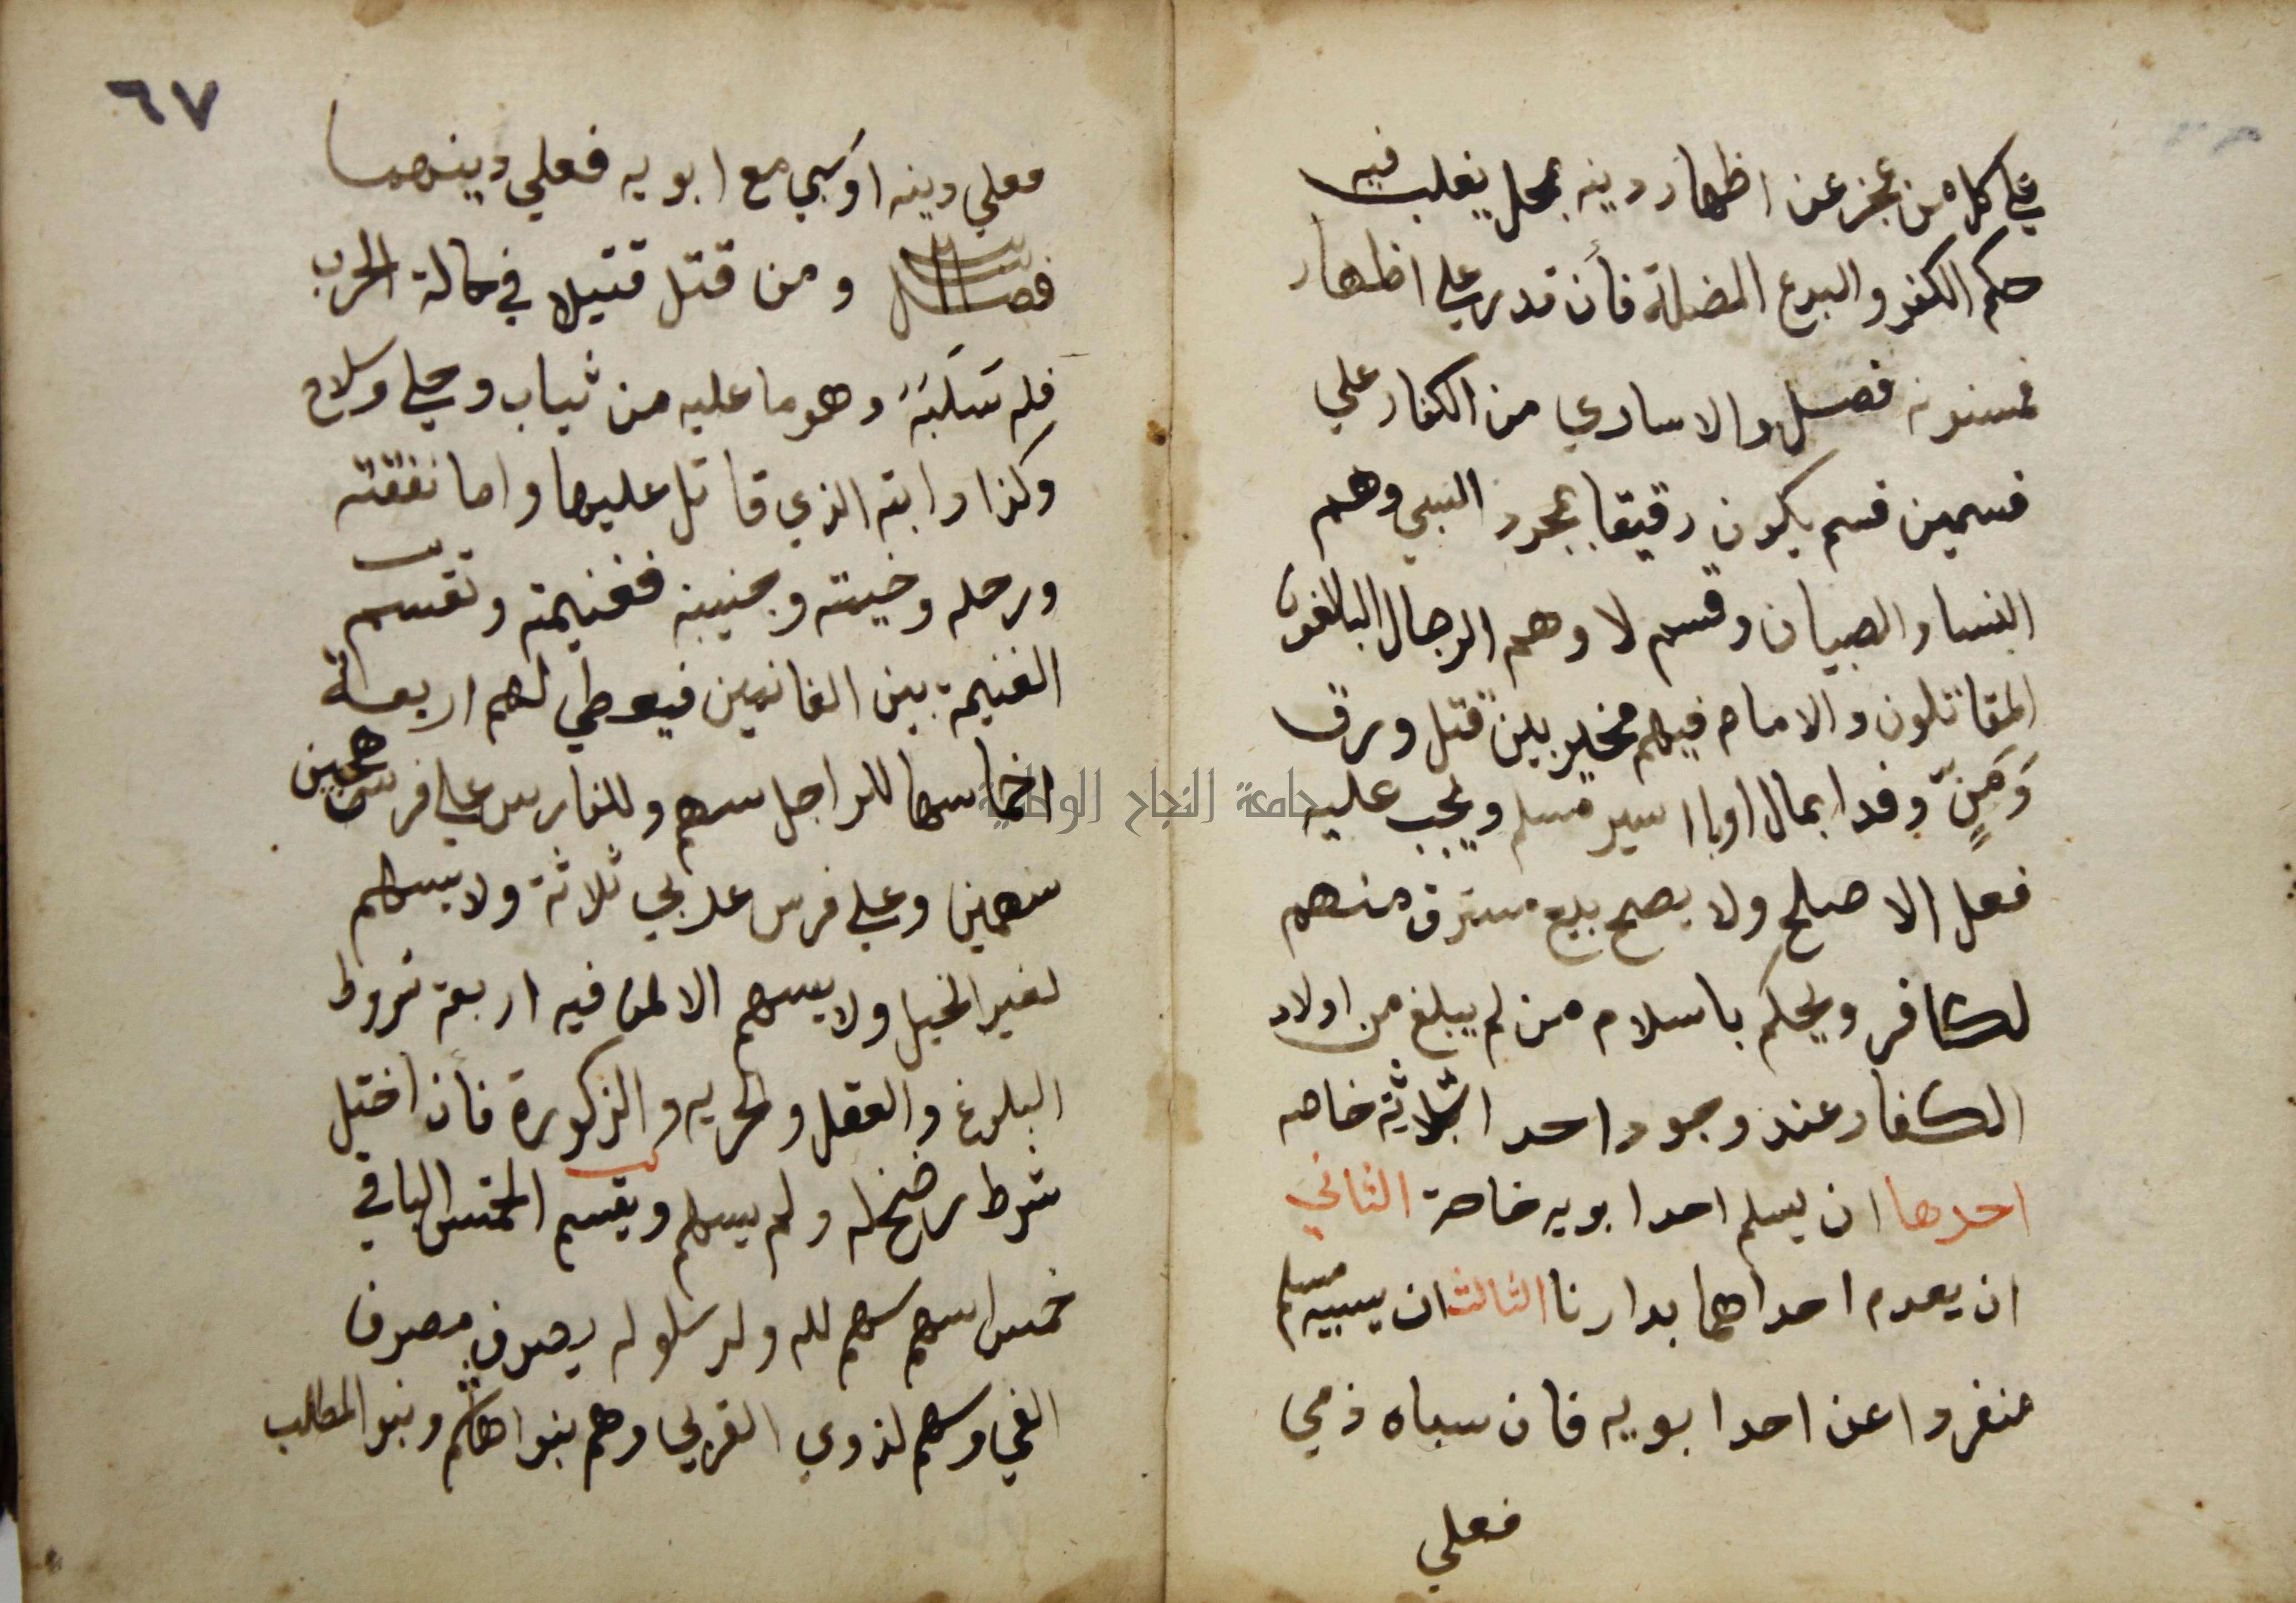 علي كل من عجز عن اظهار دينه بمحل يغلب فيه
حكم الكفر والبدع المضلة فأن قدر علي اظهار
فمسنونه فصل والاساري من الكفار علي
قسمين قسم يكون رقيقا بمجرد السبي وهم
النسا والصبيان وقسم لا وهم الرجال البالغون
المقاتلون والامام فيهم مخير بين قتل ورق
وَمَنٍّ وفدا بمال او باسير مسلم ويجب عليه
فعل الاصلح ولا يصح بيع مسترق منهم
لكافر ويحكم باسلام من لم يبلغ من اولاد
الكفار عند وجود احد اثلاثة خاصه
احدها ان يسلم احد ابويه خاصة الثاني
ان يعدم احداهما بدارنا الثالث ان يسبيه مسلم
منفردا عن احد ابويه فان سباه ذمي
فعلي
٦٧
فعلي دينه او سبي مع ابويه فعلي دينهما
فصل ومن قتل قتيلا في حالة الحرب
فله سَلَبَهُ وهو ما عليه من ثياب وحلي وسلاح
وكذا دابته الذي قاتل عليها واما نفقته
ورحله وخيمته وجنيبه فغنيمته وتقسم
الغنيمة بين الغانمين فيعطي لهم اربعة
اخماسها للراجل سهم وللفارس علي فرس هجين
سهمين وعلي فرس عربي ثلاثة ولا يسهم
لغير الخيل ولا يسهم الا لمن فيه اربعة شروط
البلوغ والعقل والحريه والذكورة فأن اختل
شرط رضخ له ولم يسهم ويقسم الخمس الباقي
خمس اسهم سهم لله ولرسلوله يصرف مصرف
الفي وسهم لذوي القربي وهم بنوا هاشم وبنوا المطلب
جامعة النجاح الوطنية